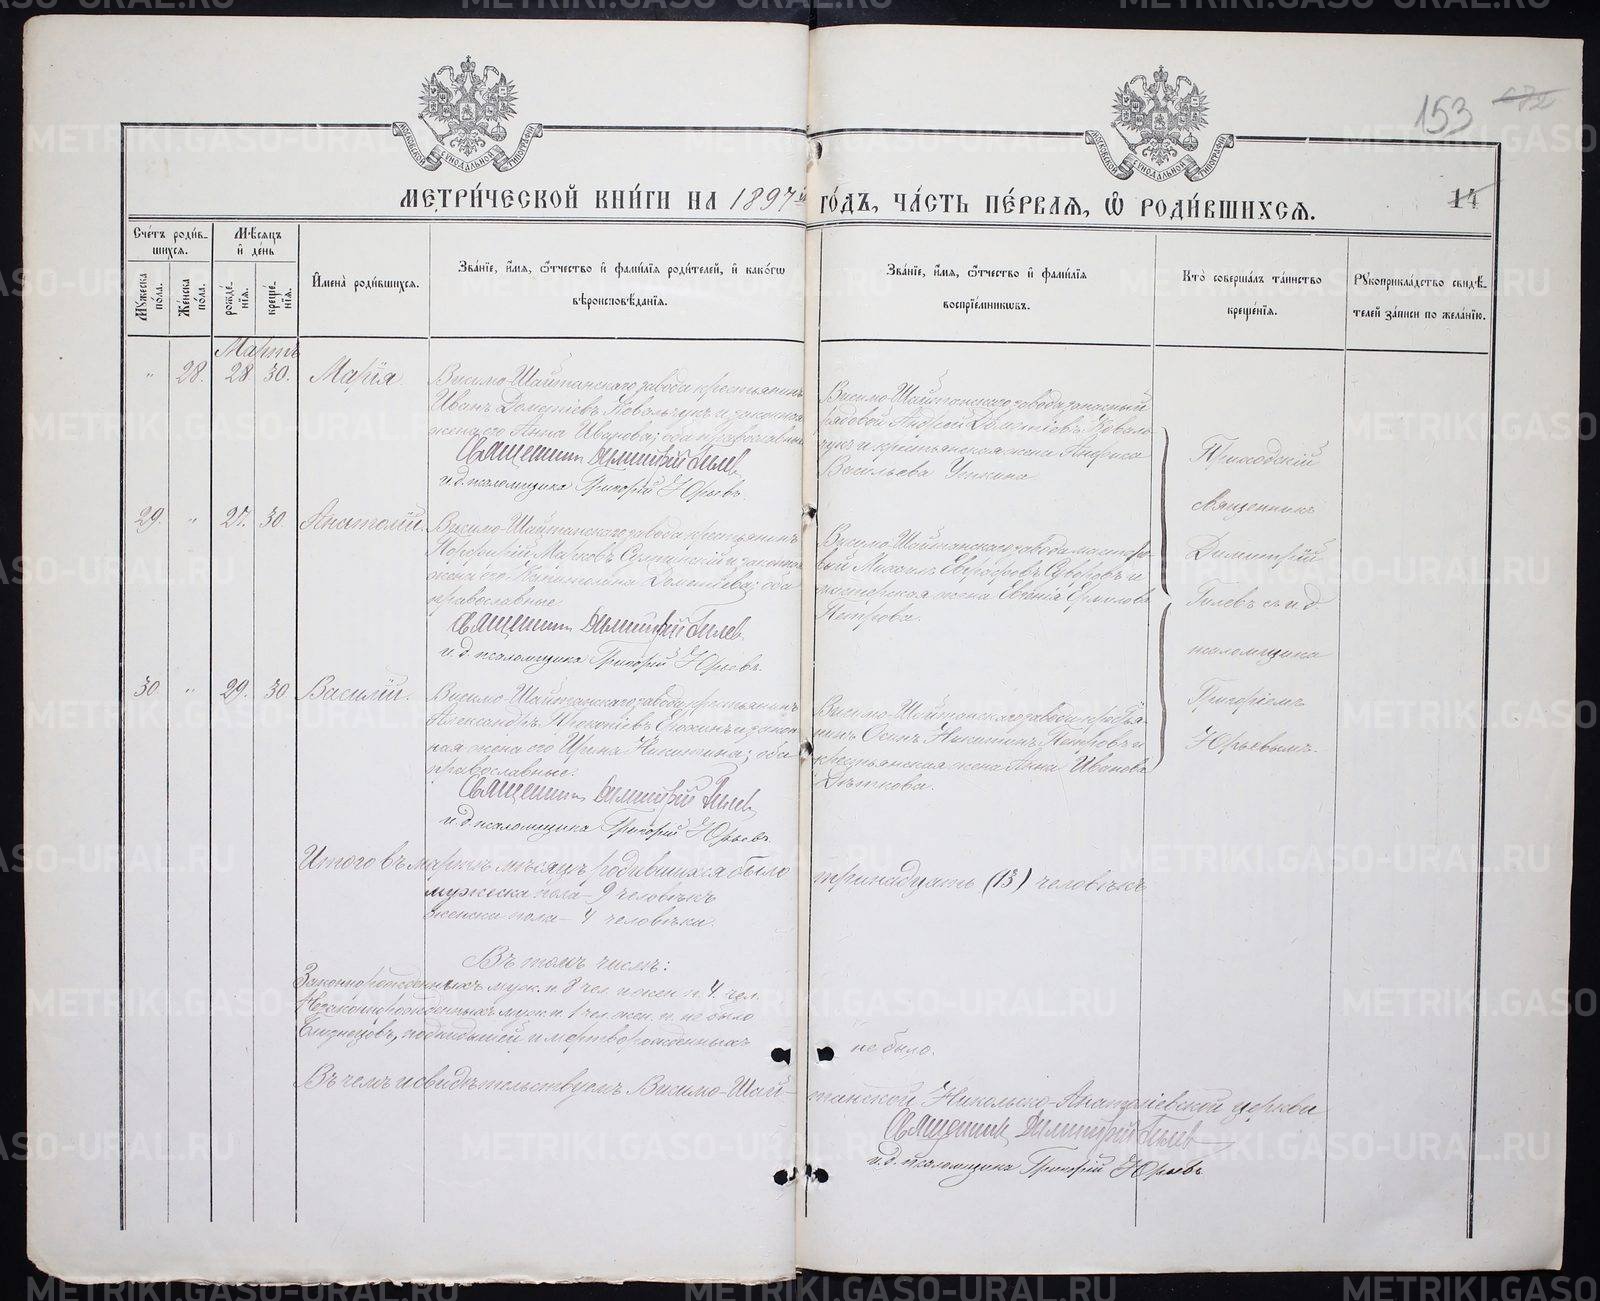 153
МЕТРИ́ЧЕСКОЙ КНИ́ГИ НА 1897 й ГО́ДЪ, ЧА́СТЬ ПЕ́РВАЯ, Ѡ РОДИ́ВШИХСЯ.
14
Сче́тъ роди́в-
шихся.
Мꙋжеска по́ла.
Же́нска по́ла.
Мѣ́сяцъ и де́нь
рожде́-
нїя.
креще́-
нїя.
Имена̀ роди́вшихся.
Зва́нїе, и́мя, ѻ́тчество и фами́лїя роди́телей, и како́гѡ
вѣроисповѣ́данїя.
Зва́нїе, и́мя, ѻ́тчество и фами́лїя
воспрїе́мникѡвъ.
Кто̀ соверша́лъ та́инство
креще́нїя.
Рꙋкоприкла́дство свидѣ́-
телей за́писи по жела́нїю.
Мартъ
" 28. 28 30. Марія
Висимо-Шайтанскаго завода крестьянинъ
Иванъ Дометіевъ Ковальчукъ и законная
жена его Анна Иванова; оба православные
Священникъ Димитрій Гилевъ
и.д. псаломщика Григорій Юрьевъ.
Висимо-Шайтанскаго завода запасный
рядовой Андрей Дометіевъ Коваль-
чукъ и крестьянская жена Анфиса
Васильева
29. " 27. 30. Анатолій.
Висимо-Шайтанскаго завода крестьянинъ
Порфирій Марковъ и законная
жена его Капитолина Дометіева; оба
православные
Священникъ Димитрій Гилевъ
и.д. псаломщика Григорій Юрьевъ.
Висимо-Шайтанскаго завода мастеро-
вый Михаилъ Суворовъ и
мастерская жена Евгенія Ермилова
Петрова.
30. " 29. 30 Василій.
Висимо-Шайтанскаго завода крестьянинъ
Александръ Прокопіевъ и закон-
ная жена его Ирина Никитина; оба
православные.
Священникъ Димитрій Гилевъ
и.д. псаломщика Григорій Юрьевъ.
Висимо-Шайтанскаго завода кресть-
янинъ Осипъ Никитинъ Петровъ и
крестьянская жена Анна Иванова
Приходскій
священникъ
Димитрій
Гилевъ съ и.д.
псаломщика
Григоріемъ
Юрьевымъ.
Итого въ мартѣ мѣсяцѣ родившихся было тринадцать (13) человѣкъ
мужеска пола - 9 человѣкъ
женска пола - 4 человѣка.
Въ томъ числѣ:
Законнорожденныхъ муж. п. 8 чел. и жен. п. 4 чел.
Незаконнорожденныхъ муж. п. 1 чел. жен. п. не было
Близнецовъ, подкидышей и мертворожденныхъ не было.
Въ чемъ и свидѣтельствуемъ Висимо-Шай-
танской Николько-Анатоліевской церкви
Священникъ Димитрій Гилевъ
и.д. псаломщика Григорій Юрьевъ
METRIKI.GASO-URAL.RU